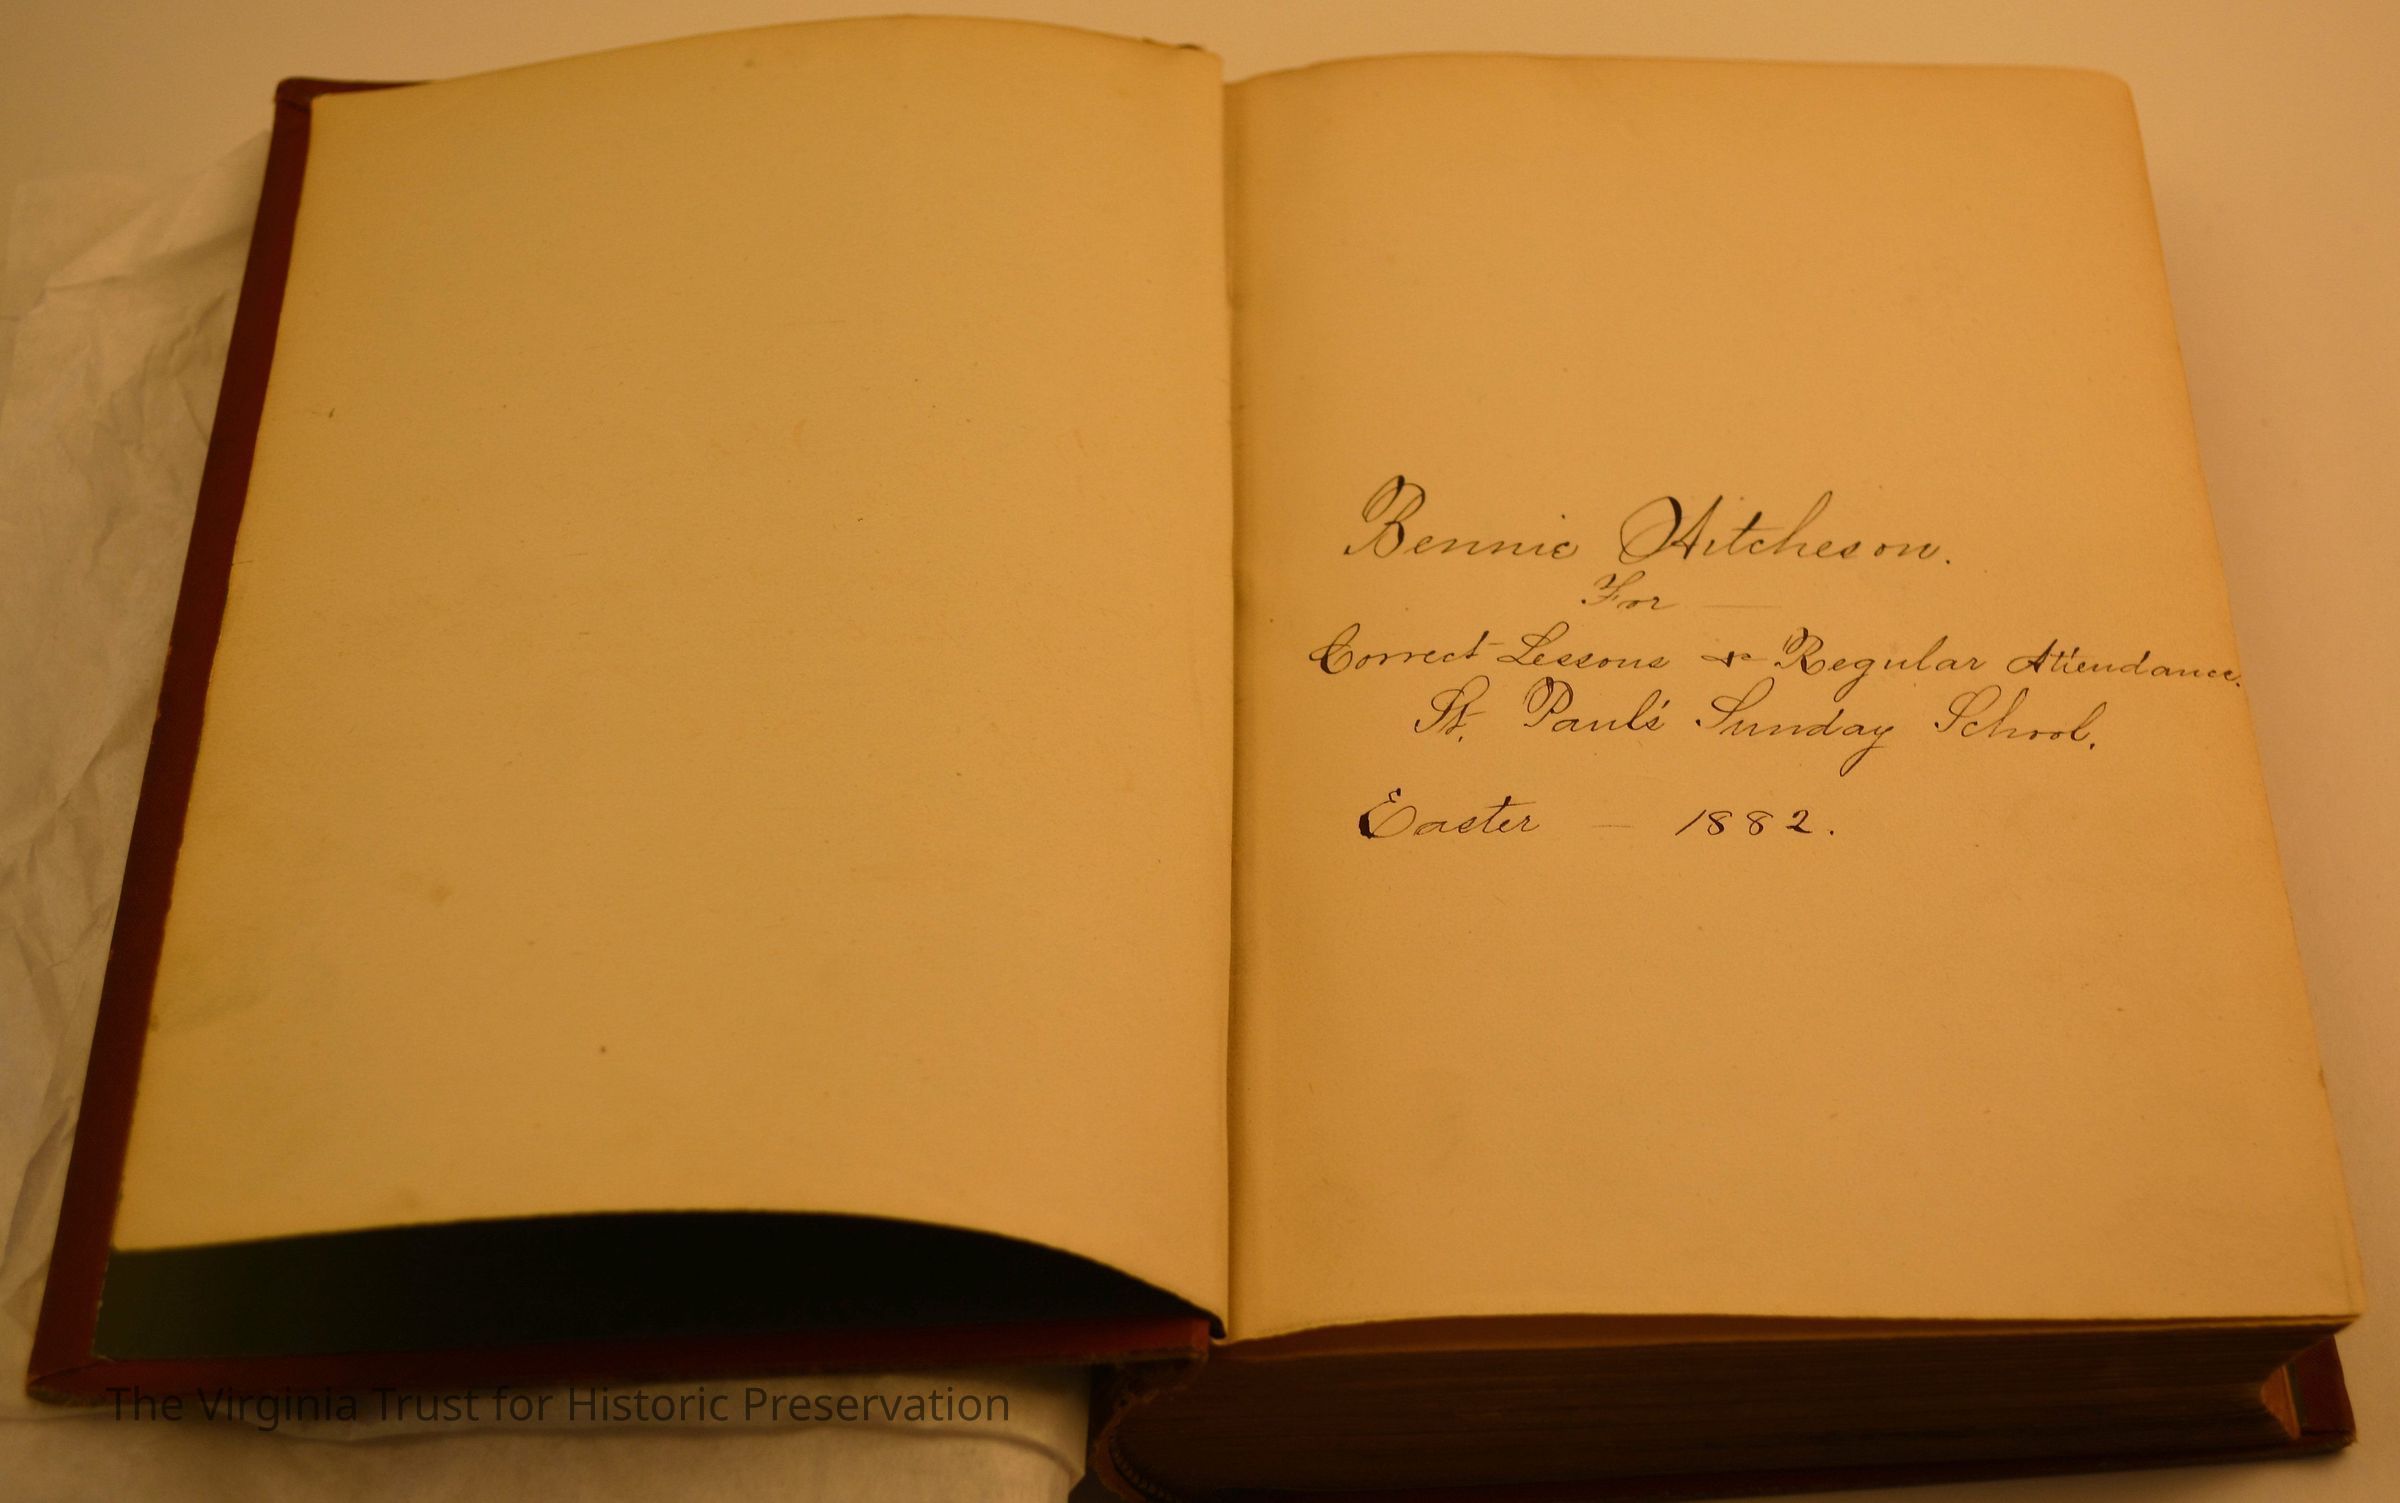 Bennie Aitcheson.
For —
Correct Lessons & Regular Attendance.
St. Paul's Sunday School.
Easter — 1882.
The Virginia Trust for Historic Preservation